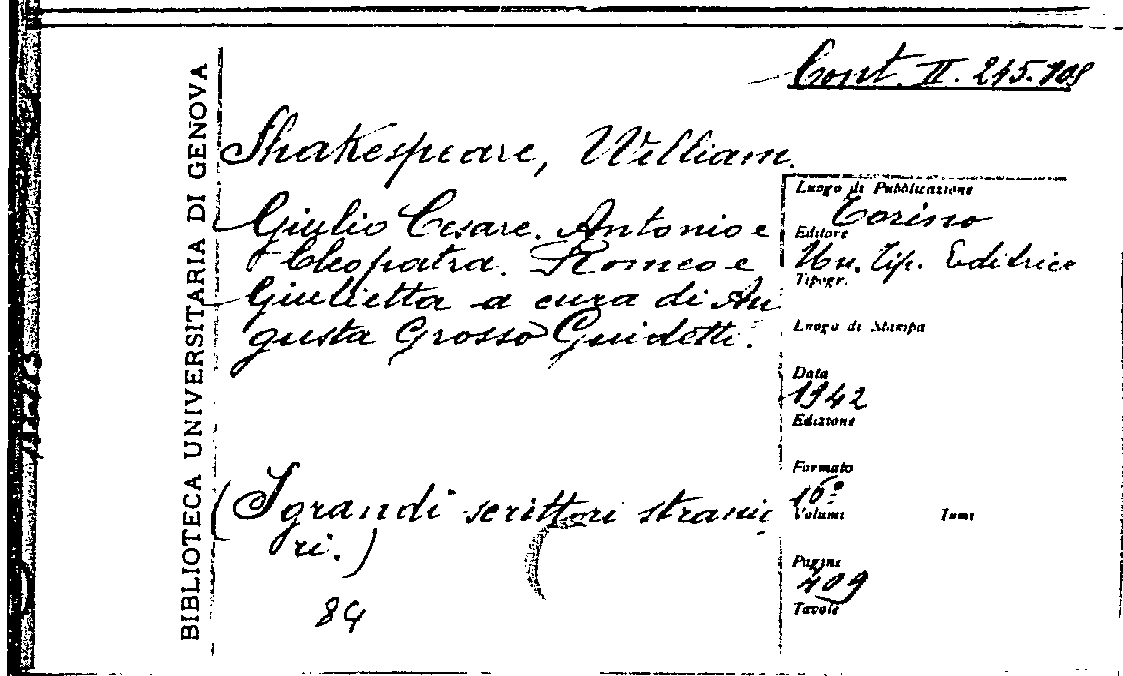 BIBLIOTECA UNIVERSITARIA DI GENOVA
Cont. II. 245.108
Shakespeare, William.
Giulio Cesare. Antonio e
Cleopatra. Romeo e
Giulietta a cura di Au
gusta Grosso Guidetti.
(I grandi scrittori stranie
ri.)
84
Luogo di Pubblicazione
Torino
Editore
Un. Tip. Editrice
Tipogr.
Luogo di Stampa
Data
1942
Edizione
Formato
16º
Volumi Tomi
Pagine
409
Tavole